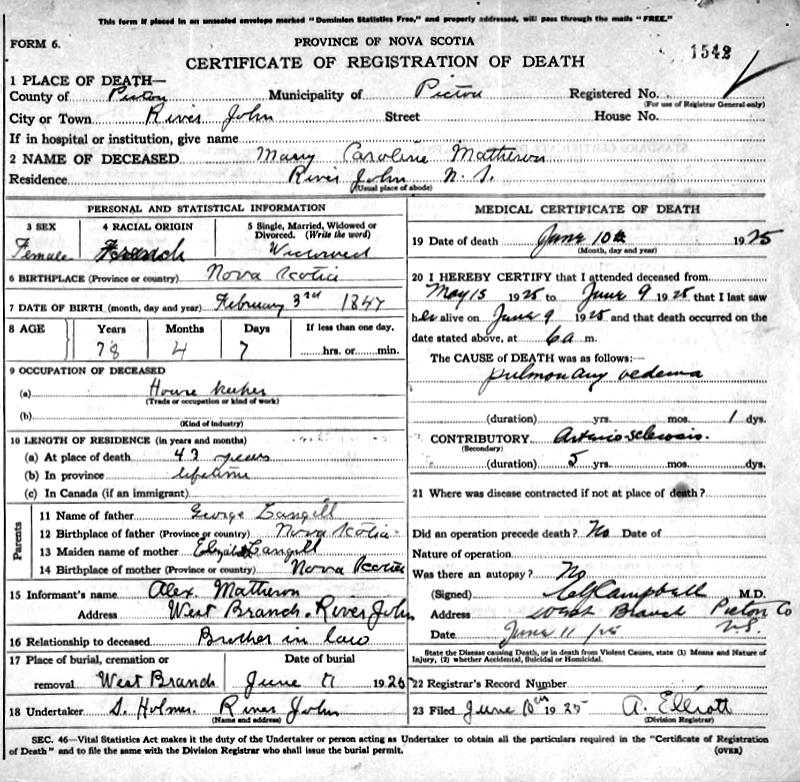 This form if placed in an unsealed envelope marked "Dominion Statistics Free," and properly addressed, will pass through the mails "FREE."
FORM 6.
PROVINCE OF NOVA SCOTIA
1542
CERTIFICATE OF REGISTRATION OF DEATH
1 PLACE OF DEATH—
County of Pictou Municipality of Pictou Registered No.
(For use of Registrar General only)
City or Town River John Street House No.
If in hospital or institution, give name
2 NAME OF DECEASED Mary Caroline Matheson
Residence River John N. S.
(Usual place of abode)
PERSONAL AND STATISTICAL INFORMATION
3 SEX 4 RACIAL ORIGIN 5 Single, Married, Widowed or Divorced. (Write the word)
Female French Widowed
6 BIRTHPLACE (Province or country) Nova Scotia
7 DATE OF BIRTH (month, day and year) February 3rd 1847
8 AGE Years Months Days If less than one day.
78 4 7 hrs. or min.
9 OCCUPATION OF DECEASED
(a) House keeper
(Trade or occupation or kind of work)
(b)
(Kind of industry)
10 LENGTH OF RESIDENCE (in years and months)
(a) At place of death 43 years
(b) In province lifetime
(c) In Canada (if an immigrant)
Parents
11 Name of father George Langill
12 Birthplace of father (Province or country) Nova Scotia
13 Maiden name of mother Elizabeth Langill
14 Birthplace of mother (Province or country) Nova Scotia
15 Informant's name Alex. Matheson
Address West Branch. River John
16 Relationship to deceased Brother in law
17 Place of burial, cremation or Date of burial
removal West Branch June 1925
18 Undertaker S. Holmes River John
(Name and address)
MEDICAL CERTIFICATE OF DEATH
19 Date of death June 10th 1925
(Month, day and year)
20 I HEREBY CERTIFY that I attended deceased from
May 15 1925 to June 9 1925 that I last saw
her alive on June 9 1925 and that death occurred on the
date stated above, at 6 a m.
The CAUSE of DEATH was as follows:—
pulmonary oedema
(duration) yrs. mos. 1 dys.
CONTRIBUTORY Arterio-sclerosis.
(Secondary)
(duration) 5 yrs. mos. dys.
21 Where was disease contracted if not at place of death?
Did an operation precede death? No Date of
Nature of operation
Was there an autopsy? No
(Signed) Campbell M.D.
Address West Branch Pictou Co
N.S.
Date June 11 /25
State the Disease causing Death, or in death from Violent Causes, state (1) Means and Nature of
Injury, (2) whether Accidental, Suicidal or Homicidal.
22 Registrar's Record Number
23 Filed June 1925 A. Elliott
(Division Registrar)
SEC. 46—Vital Statistics Act makes it the duty of the Undertaker or person acting as Undertaker to obtain all the particulars required in the "Certificate of Registration
of Death" and to file the same with the Division Registrar who shall issue the burial permit.
(OVER)